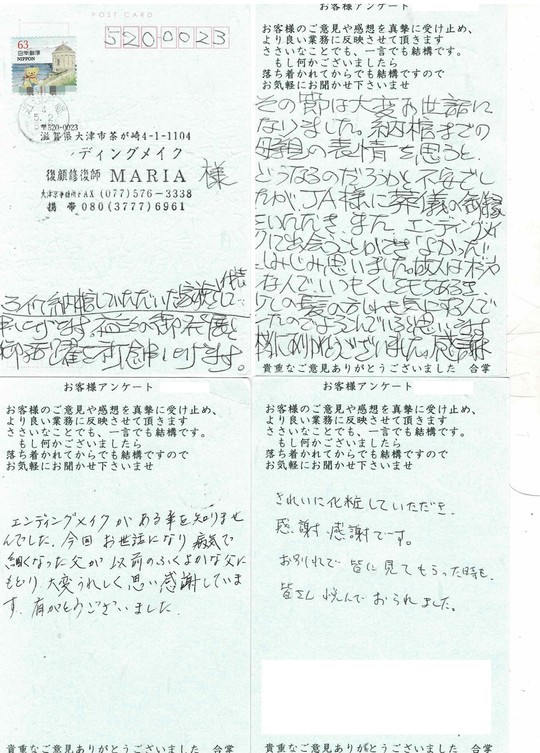 POST CARD
5200023
63
日本郵便
NIPPON
〒520-0023
滋賀県大津市茶が崎4-1-1104
ディングメイク
復顔修復師 MARIA 様
大津京事務所FAX (077)576-3338
携 帯 080(3777)6961
納棺していただいた家族として
申し上げます。益々の御発展と
御活躍を御祈念申し上げます。
お客様のご意見や感想を真摯に受け止め、
より良い業務に反映させて頂きます
ささいなことでも、一言でも結構です。
もし何かございましたら
落ち着かれてからでも結構ですので
お気軽にお聞かせ下さいませ
その節は大変お世話に
なりました。納棺までの
母親の表情を思うと、
どうなるのだろうかと不安でし
たが、JA様に葬儀の御縁
をいただき、また、エンディングメイ
クに出会うことができなかったら
しみじみ思いました。故人は
なんでいつもくしをもちあるき
の髪の方しゃも気にするんで
たのでよろこんでいると思います。
ありがとうございました。感謝
貴重なご意見ありがとうございました 合掌
お客様アンケート
お客様のご意見や感想を真摯に受け止め、
より良い業務に反映させて頂きます
ささいなことでも、一言でも結構です。
もし何かございましたら
落ち着かれてからでも結構ですので
お気軽にお聞かせ下さいませ
エンディングメイクがある事を知りませ
んでした。今回お世話になり病気で
細くなった父が以前のふくよかな父に
もどり大変うれしく思い感謝していま
す。有がとうございました。
貴重なご意見ありがとうございました 合掌
お客様アンケート
お客様のご意見や感想を真摯に受け止め、
より良い業務に反映させて頂きます
ささいなことでも、一言でも結構です。
もし何かございましたら
落ち着かれてからでも結構ですので
お気軽にお聞かせ下さいませ
きれいに化粧していただき、
感謝感謝です。
お別れで皆に見てもらった時も、
皆さん悦んでおられました。
貴重なご意見ありがとうございました 合掌